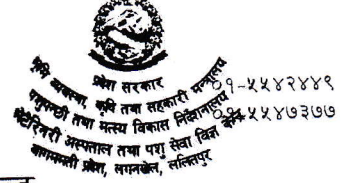 प्रदेश सरकार
भूमि व्यवस्था, कृषि तथा सहकारी मन्त्रालय
पशुपन्छी तथा मत्स्य विकास निर्देशनालय
भेटेरिनरी अस्पताल तथा पशु सेवा विज्ञ केन्द्र
बागमती प्रदेश, लगनखेल, ललितपुर
०१-५५४२४४९
५५४७३७७